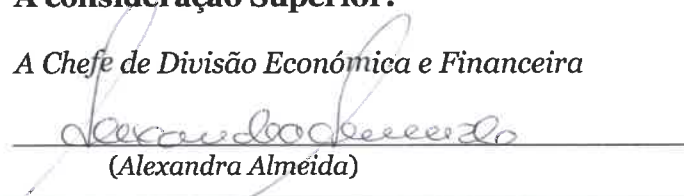 A consideração Superior.
A Chefe de Divisão Económica e Financeira
(Alexandra Almeida)